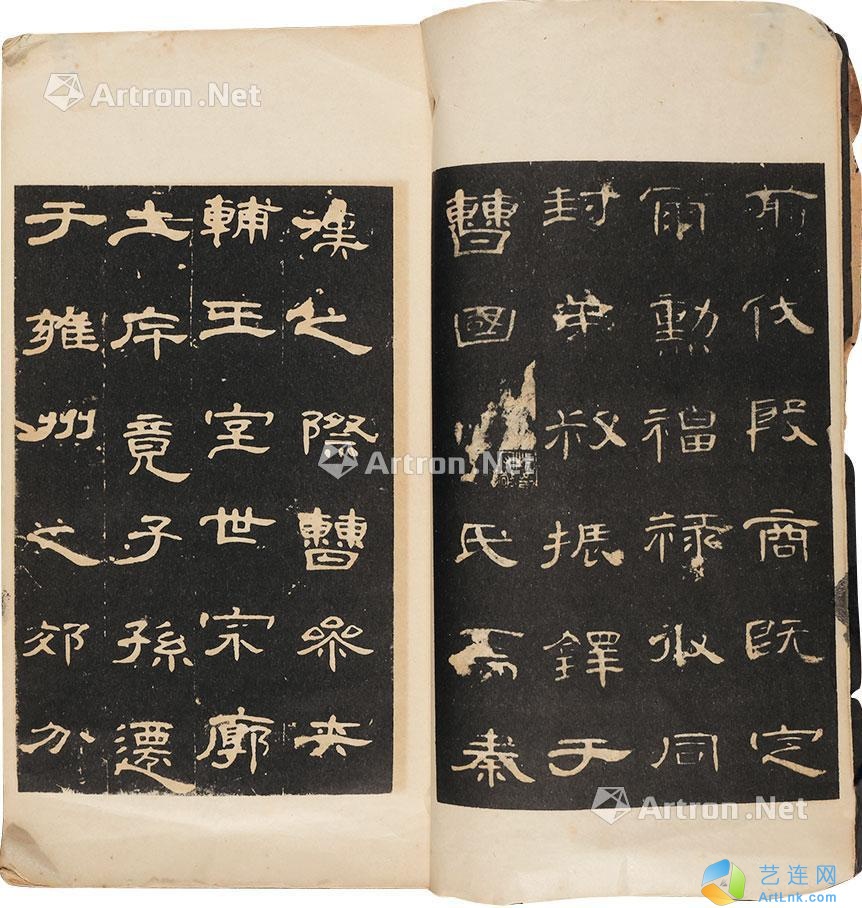 前伐殷商既定
爾勳福祿攸同
封弟叔振鐸于
曹國氏焉秦
漢之際曹參夾
輔王室世宗廓
土斥竟子孫遷
于雍州之郊分
Artron.Net
Artron.Net
Artron.Net
艺连网
ArtLnk.com